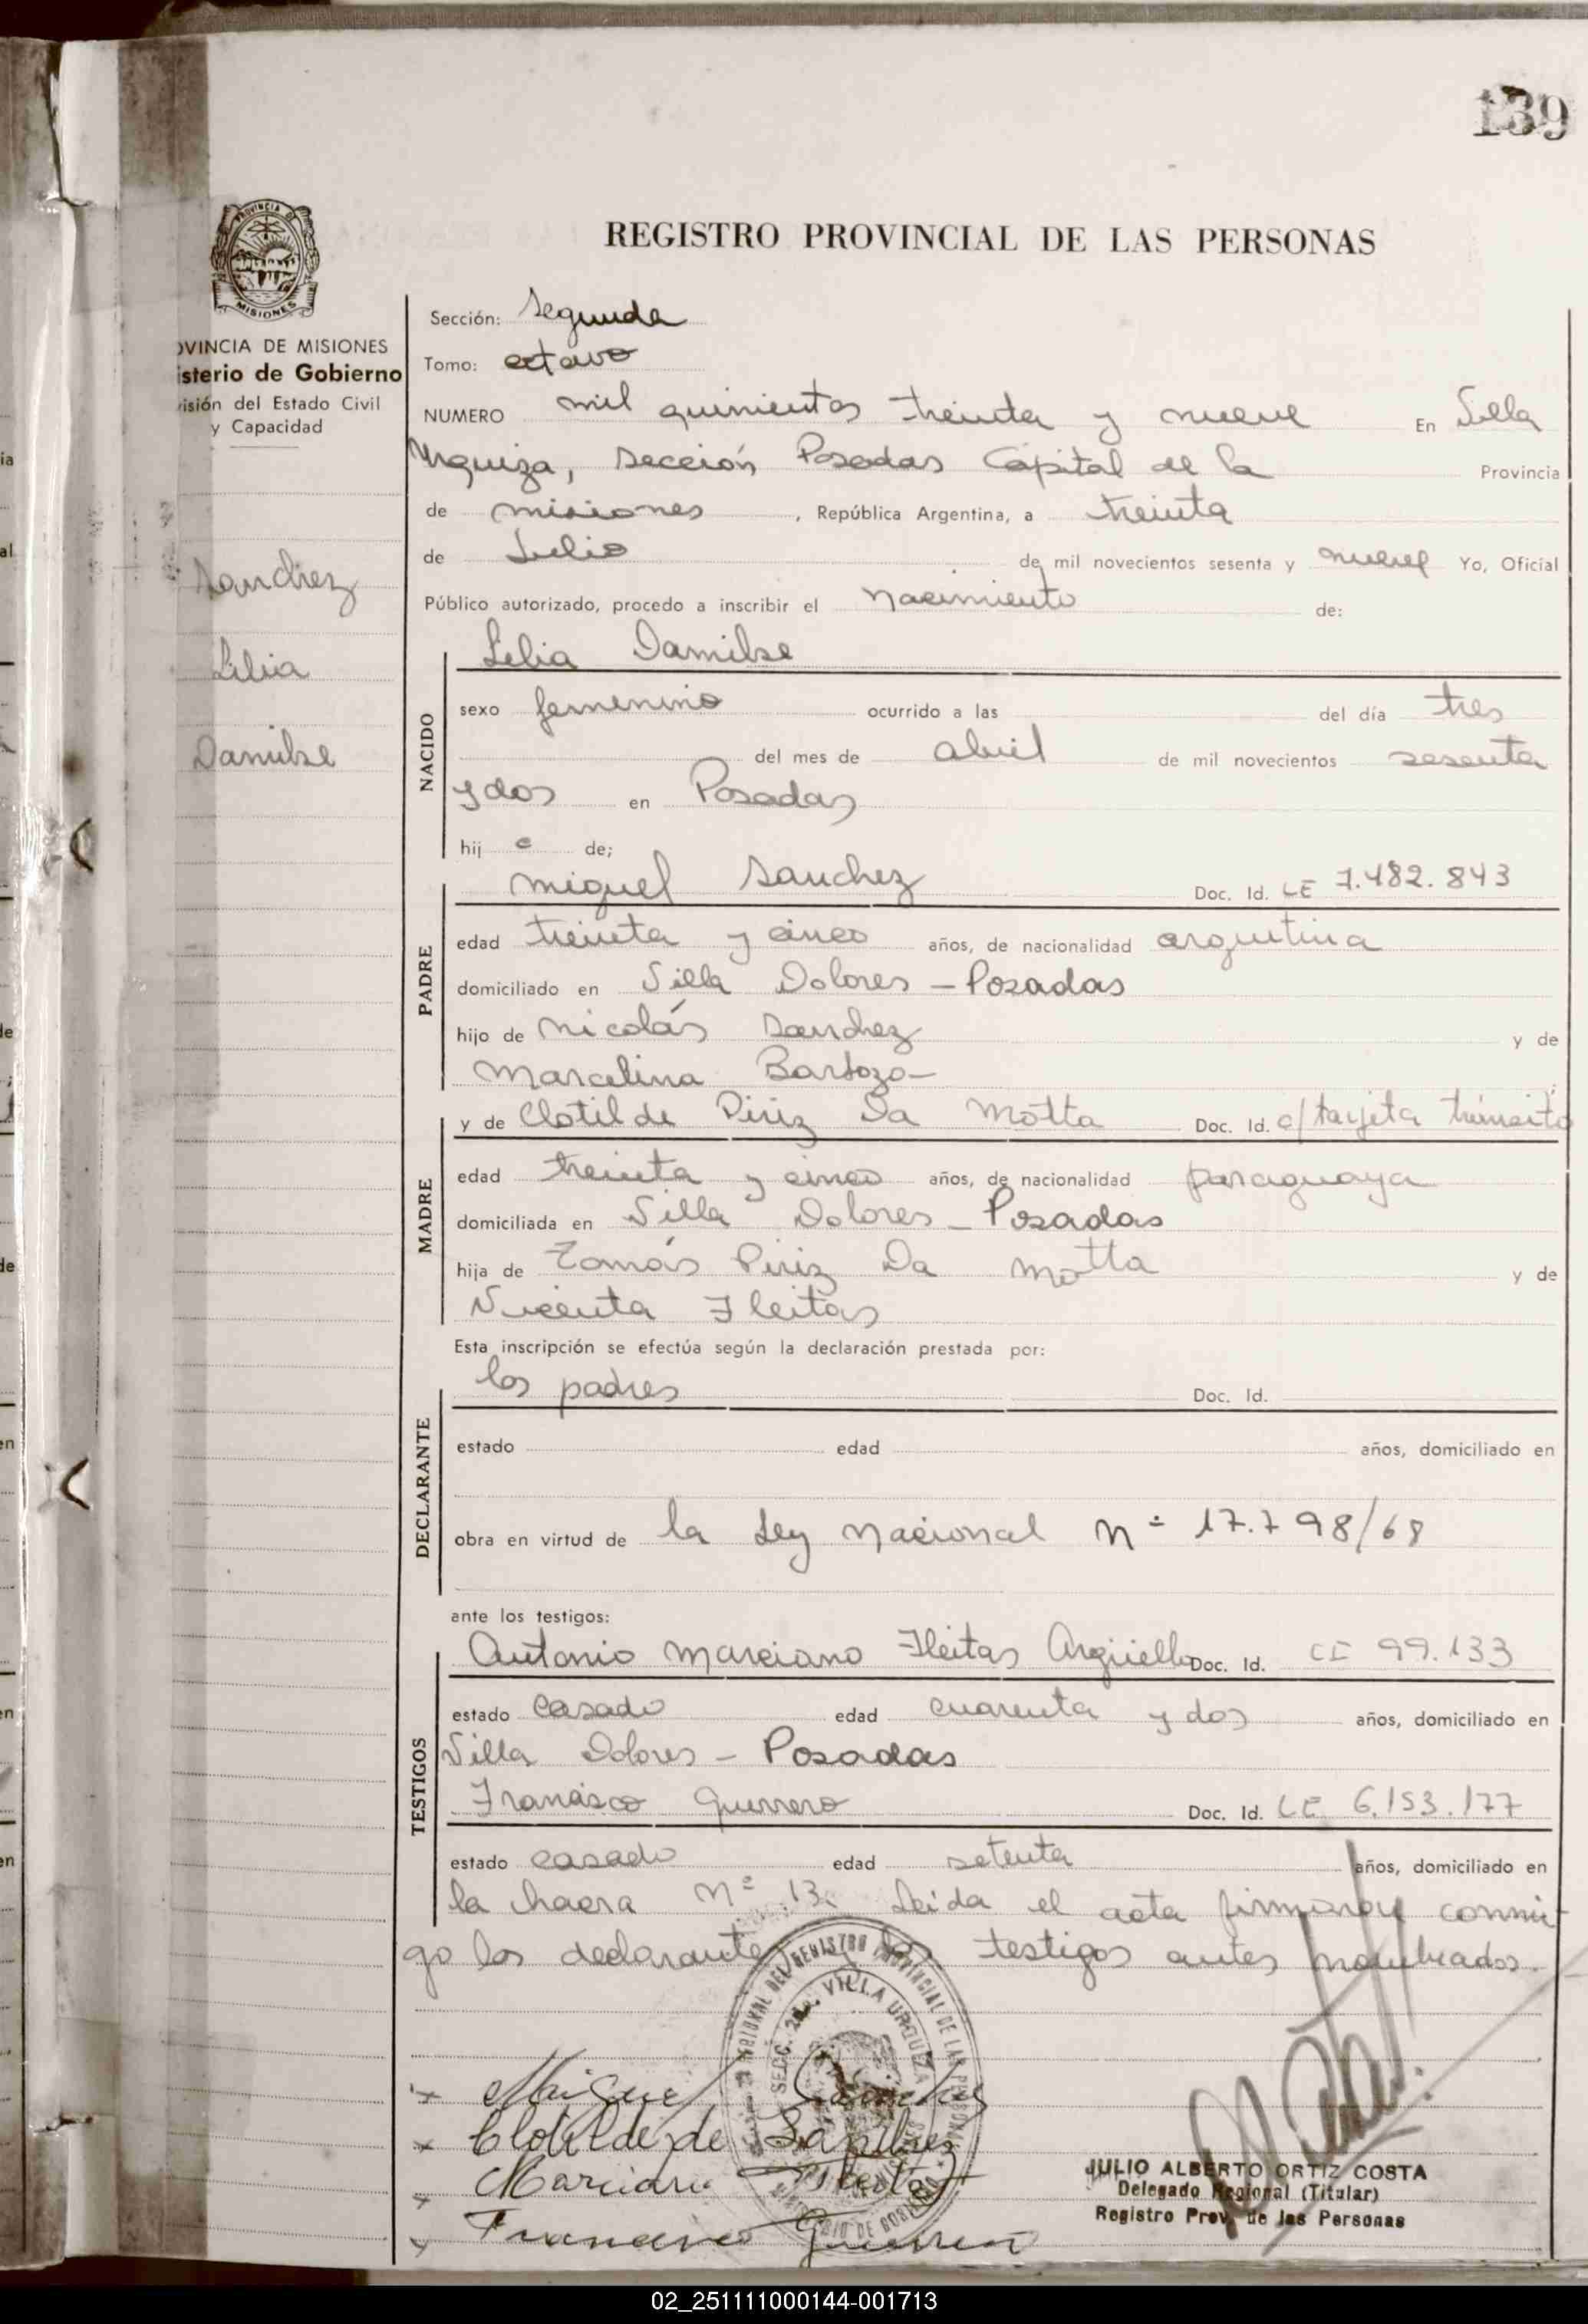 139
REGISTRO PROVINCIAL DE LAS PERSONAS
MISIONES
OVINCIA DE MISIONES
isterio de Gobierno
visión del Estado Civil
y Capacidad
Sanchez
Lilia
Damilse
Sección: Segunda
Tomo: octavo
NUMERO mil quinientos treinta y nueve En Villa
Urquiza, Sección Posadas Capital de la Provincia
de misiones, República Argentina, a treinta
de Julio de mil novecientos sesenta y nueve Yo, Oficial
Público autorizado, procedo a inscribir el nacimiento de:
Lilia Damilse
NACIDO
sexo femenino ocurrido a las del día tres
del mes de abril de mil novecientos sesenta
y dos en Posadas
hij a de;
miguel Sanchez Doc. Id. LE 7.482.843
PADRE
edad treinta y cinco años, de nacionalidad argentina
domiciliado en Villa Dolores - Posadas
hijo de Nicolás Sanchez y de
Marcelina Barbozo-
y de Clotilde Piriz Da Motta Doc. Id. c/ tarjeta tránsito
MADRE
edad treinta y cinco años, de nacionalidad paraguaya
domiciliada en Villa Dolores - Posadas
hija de Tomás Piriz Da Motta y de
Vicenta Fleitas
Esta inscripción se efectúa según la declaración prestada por:
los padres Doc. Id.
DECLARANTE
estado edad años, domiciliado en
obra en virtud de la Ley Nacional Nº 17.798/68
ante los testigos:
Antonio Marciano Fleitas Argüello Doc. Id. CI 99.133
TESTIGOS
estado casado edad cuarenta y dos años, domiciliado en
Villa Dolores - Posadas
Francisco Guerrero Doc. Id. LE 6.153.177
estado casado edad setenta años, domiciliado en
la chacra Nº 13. Leida el acta firmaron conmi-
go los declarantes y los testigos antes nombrados.
SECC. 2da. VILLA URQUIZA
x Miguel Sanchez
x Clotilde de Sanchez
x Marciano Fleitas
x Francisco Guerrero
JULIO ALBERTO ORTIZ COSTA
Delegado Regional (Titular)
Registro Prov. de las Personas
02_251111000144-001713